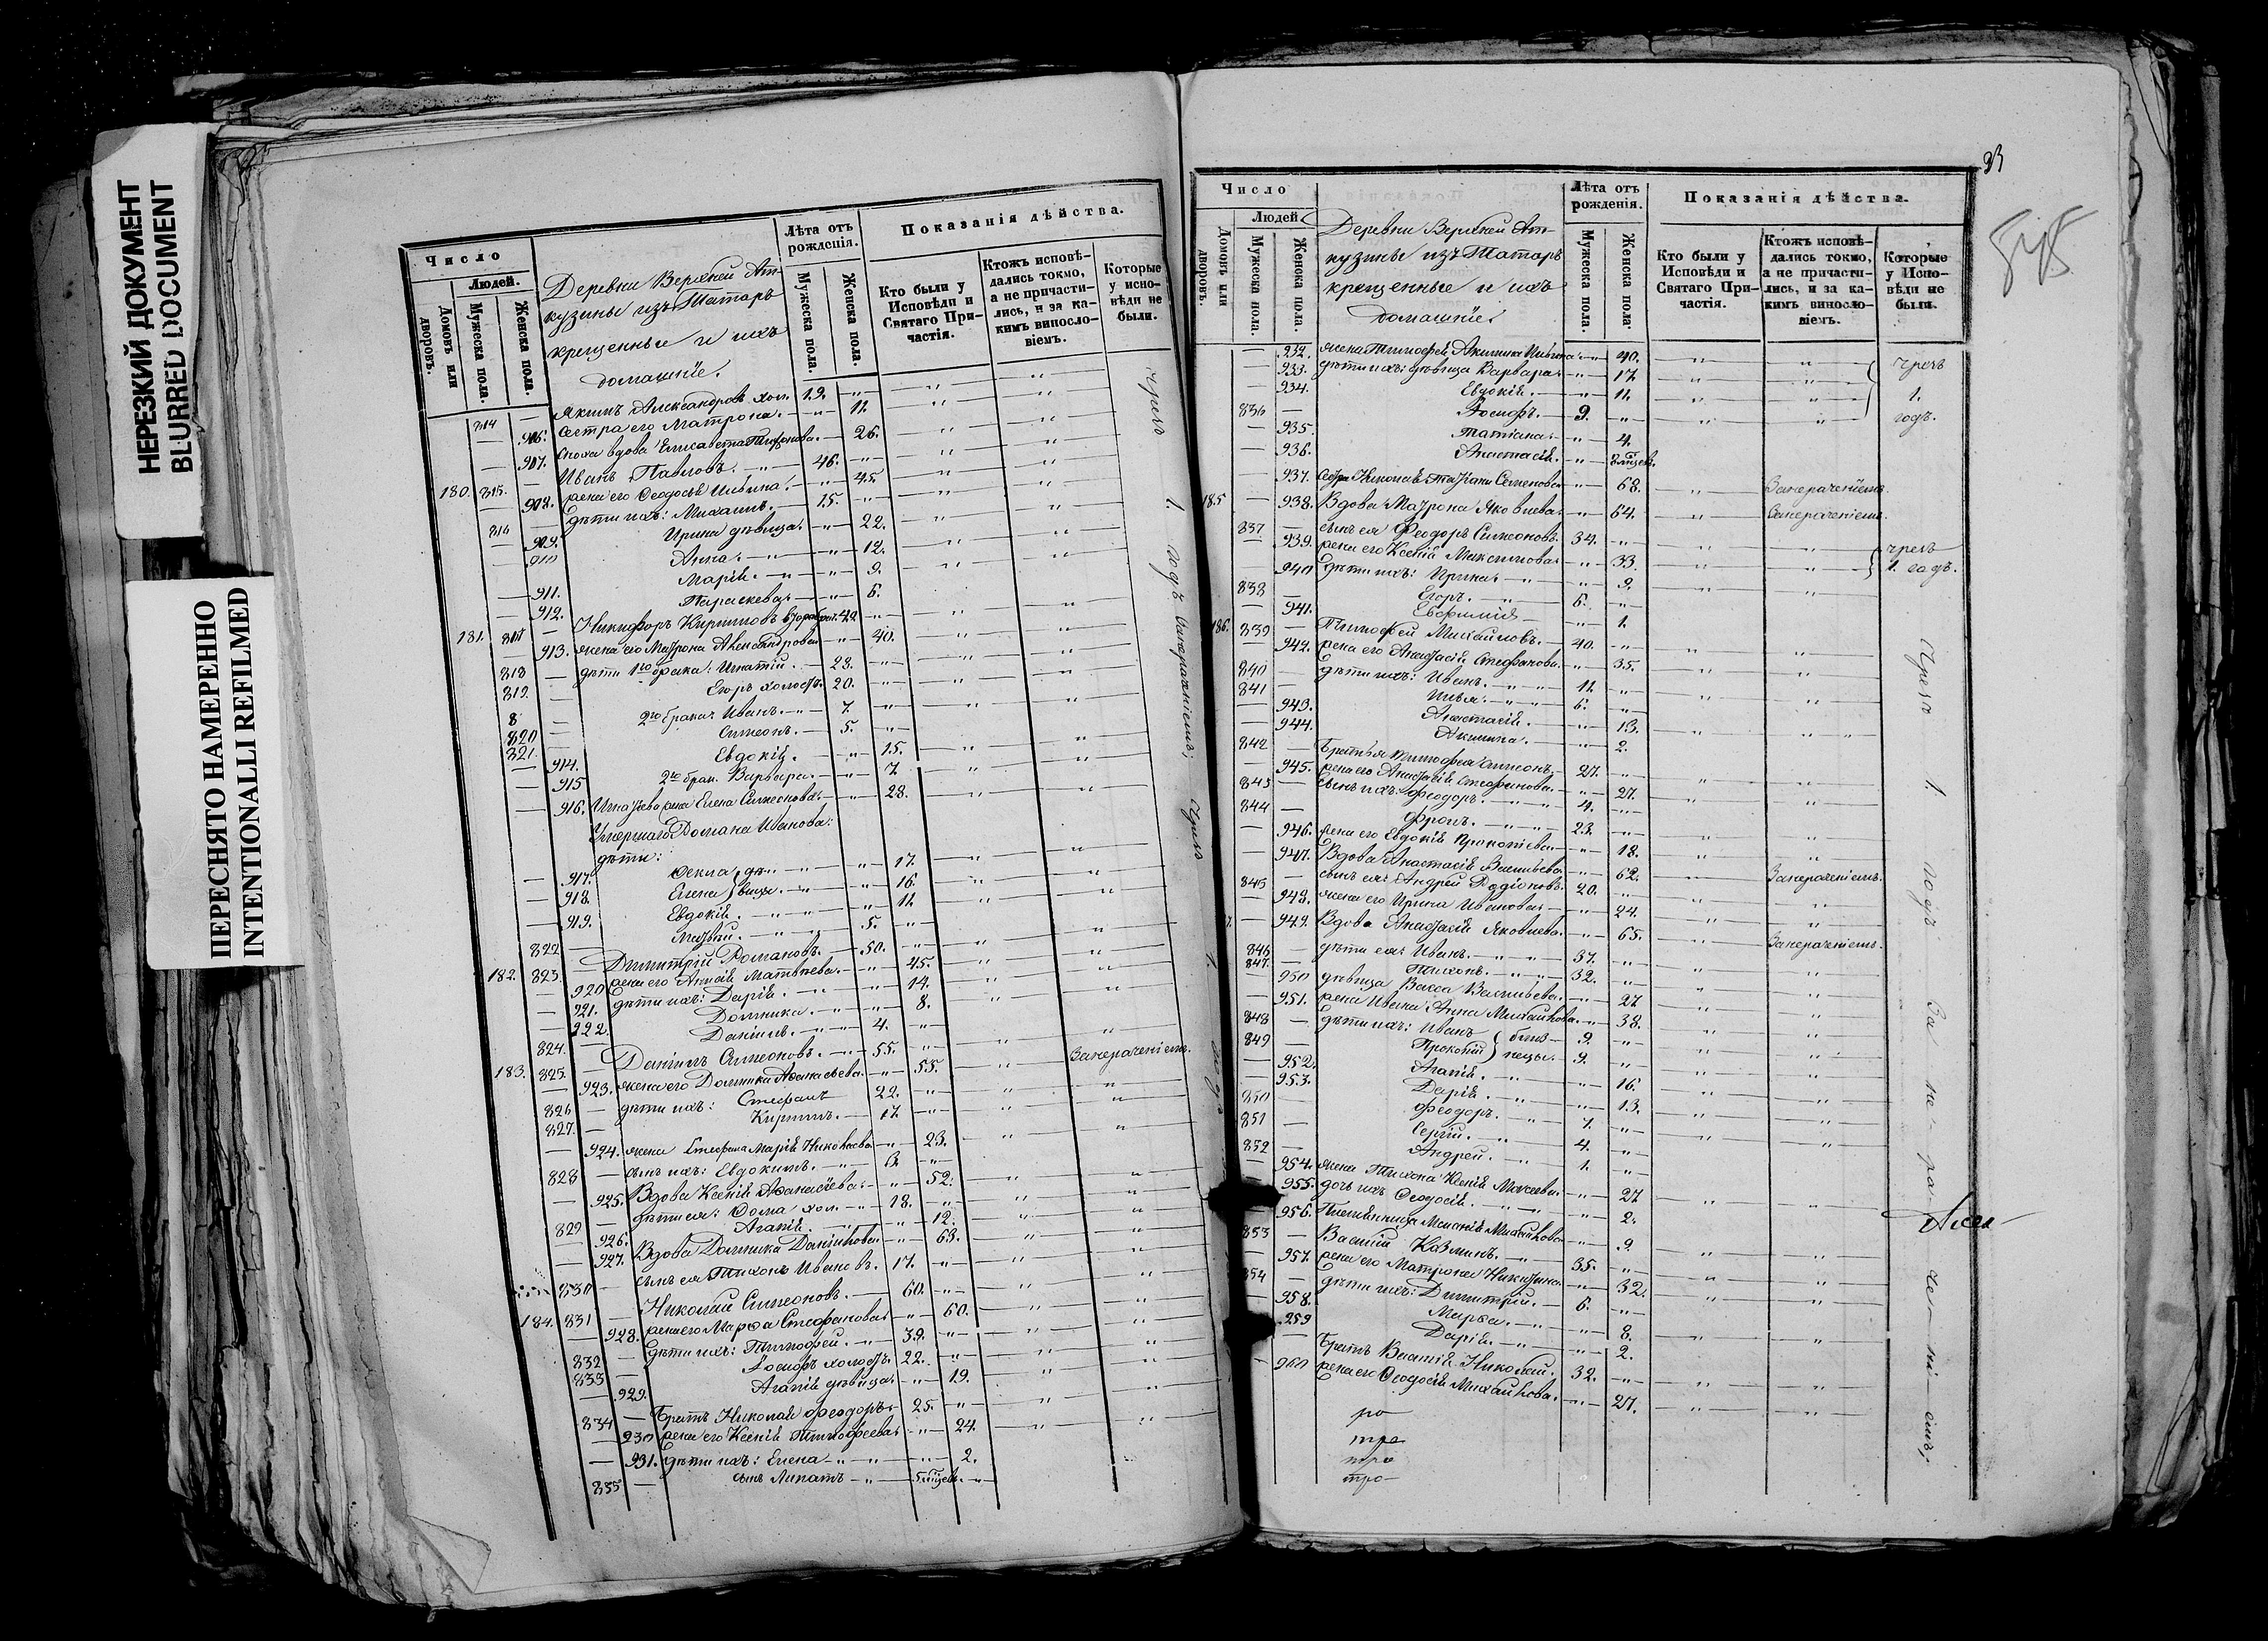 НЕРЕЗКИЙ ДОКУМЕНТ
BLURRED DOCUMENT
ПЕРЕСНЯТО НАМЕРЕННО
INTENTIONALLI REFILMED
Число
Людей.
Домовъ или дворовъ.
Мужеска пола.
Женска пола.
Деревни Верхней Ат-
кузины изъ Татаръ
крещенные и ихъ
домашніе.
Лѣта отъ рожденія.
Мужеска пола.
Женска пола.
Показанія дѣйства.
Кто были у Исповѣди и Святаго При-частія.
Ктожъ исповѣ-дались токмо, а не причасти-лись, и за ка-кимъ винosло-віемъ.
Которые у испо-вѣди не были.
814 — Якимъ Александровъ хол. 19. —"—
— сестра его Матрона. —"— 11.
— 907. Сноха вдова Елисавета —"— 26.
180. 815. — Иванъ Павловъ. 46. —"—
— 908. жена его Ѳеодосья —"— 45.
816 — дѣти ихъ: Михаилъ. 15. —"—
— 909. Ирина дѣвица. —"— 22.
— 910 Анна. —"— 12.
— 911. Марія. —"— 9.
— 912. Параскева. —"— 6.
181. 817 — Никифоръ Кириловъ 42 —"—
— 913. жена его Матрона Александрова —"— 40.
818 — дѣти 1го брака: Игнатій. 28. —"—
819. — Егоръ холостъ. 20. —"—
820 — 2го брака: Иванъ. 7. —"—
821. — Симеонъ. 5. —"—
— 914. Евдокія. —"— 15.
— 915 2го брак. Варвара. —"— 7.
— 916. Игнатьева жена Елена Симеонова. —"— 28.
Умершаго Романа Иванова:
дѣти:
— 917. Ѳекла —"— 17.
— 918. Елена —"— 16.
— 919. Евдокія. —"— 11.
822 — Матвей. 5. —"—
182. 823. — Димитрій Романовъ. 50. —"—
— 920 жена его Матвѣева. —"— 45.
— 921. дѣти ихъ: Дарія. —"— 14.
— 922. Домника. —"— 8.
824. — Даніилъ. 4. —"—
183. 825. — Даніилъ Симеоновъ. 55. —"—
— 923. жена его Домника Аѳанасьева. —"— 55. Занераченіемъ.
826 — дѣти ихъ: Стефанъ 22. —"—
827. — Кирилъ. 17. —"—
— 924. жена Стефана Марія Николаева —"— 23.
828 — сынъ ихъ: Евдокимъ. —"—
— 925. Вдова Ксенія Аѳанасьева. —"— 52.
829 — дѣти ея: Ѳома хол. 18. —"—
— 926. Агапія. —"— 12.
— 927. Вдова Домника Даніилова —"— 63.
830 — сынъ ея Тихонъ Ивановъ. 17. —"—
184. 831 — Николай Симеоновъ. 60. —"—
— 928. жена его Марѳа Стефанова —"— 60.
832 — дѣти ихъ: Тимоѳей. 39. —"—
833 — Іосифъ холостъ. 22. —"—
— 929. Агапія дѣвица. —"— 19.
834 — Братъ Николая Ѳеодоръ 25. —"—
— 930 жена его Ксенія Тимофеева —"— 24.
— 931. дѣти ихъ: Елена —"— 2.
835 — сынъ Липатъ
Число
Людей.
Домовъ или дворовъ.
Мужеска пола.
Женска пола.
Деревни Верхней Ат-
кузины изъ Татаръ
крещенные и ихъ
домашніе.
Лѣта отъ рожденія.
Мужеска пола.
Женска пола.
Показанія дѣйства.
Кто были у Исповѣди и Святаго При-частія.
Ктожъ исповѣ-дались токмо, а не причасти-лись, и за ка-кимъ винosло-віемъ.
Которые у Испо-вѣди не были.
— 932. жена Тимофея Акилина —"— 40. чрезъ
— 933. дѣти ихъ: дѣвица Варвара. —"— 17. 1.
— 934. Евдокія. —"— 11. годъ.
836 — Іосифъ. 9. —"—
— 935. Татіана. —"— 4.
— 936. Анастасія.
— 937. Сестра Николая Татіана Семенова —"— 68. Занераченіемъ.
185 — 938. Вдова Матрона Яковлева —"— 64. Занераченіемъ.
837 — сынъ ея Ѳеодоръ Симеоновъ. 34. —"—
— 939. жена его Ксенія Максимова —"— 33. чрезъ
— 940 дѣти ихъ: Ирина. —"— 9. 1. годъ.
838 — Егоръ. 6. —"—
— 941. Евфимія —"— 1.
186. 839 — Тимофей Михайловъ. 40. —"—
— 942. жена его Анастасія Стефанова —"— 35.
840 — дѣти ихъ: Иванъ. 11. —"—
841 — Илья. 6. —"—
— 943. Анастасія. —"— 13.
— 944. Акилина. —"— 2.
842 — Братья Тимофея Симеонъ. 27. —"—
— 945. жена его Анастасія Стефанова. —"— 27.
843 — сынъ ихъ: Ѳеодоръ. 4. —"—
844 — Фролъ. 23. —"—
— 946. жена его Евдокія Прокопіева —"— 18.
— 947. Вдова Анастасія Васильева —"— 62. Занераченіемъ.
845 — сынъ ея: Андрей Родіоновъ. 20. —"—
— 948. жена его Ирина Иванова —"— 24.
— 949. Вдова Анастасія Яковлева. —"— 65. Занераченіемъ.
846 — дѣти ея: Иванъ. 37. —"—
847. — Тихонъ. 32. —"—
— 950 дѣвица Васса Васильева. —"— 27
— 951. жена Ивана Анна Михайлова. —"— 38.
848 — дѣти ихъ: Иванъ близ- 9. —"—
849 — Прокопій нецы. 9. —"—
— 952. Агапія. —"— 16.
— 953. Дарія. —"— 13.
850 — Ѳеодоръ. 7. —"—
851 — Сергій. 4. —"—
852 — Андрей. 1. —"—
— 954. жена Тихона Ксенія —"— 27
— 955. дочь ихъ Ѳеодосія. —"— 2.
— 956. Племянница Меланія Михайлова —"— 9.
853 — Василій Козминъ. 35. —"—
— 957. жена его Матрона Никитина —"— 32.
854 — дѣти ихъ: Димитрій. 6. —"—
— 958. Марѳа. —"— 8.
— 959 Дарія. —"— 2.
— Братъ Василія Николай. 32. —"—
— 960 жена его Ѳеодосія Михайлова. —"— 27.
чрезъ 1. годъ занераченіемъ;
Чрезъ 1. годъ За не-ра-че-ніемъ;